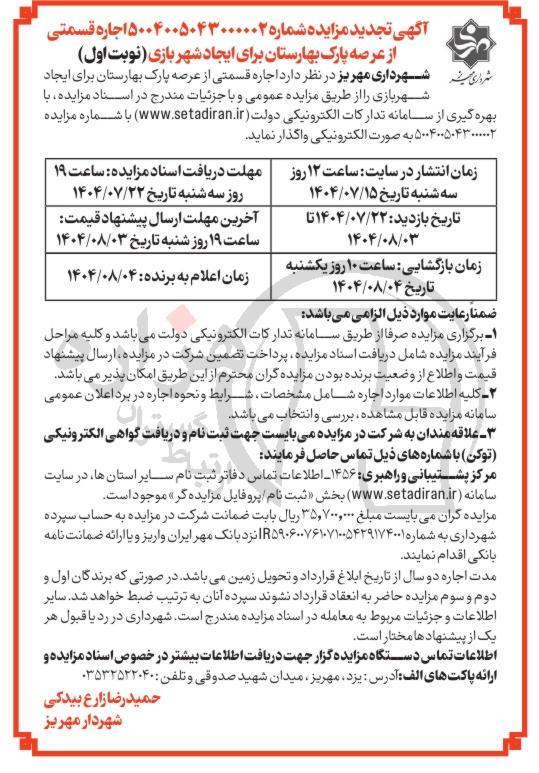 آگهی تجدید مزایده شماره ۵۰۰۴۰۰۵۰۴۳۰۰۰۰۰۲ اجاره قسمتی
از عرصه پارک بهارستان برای ایجاد شهربازی (نوبت اول)
شهرداری مهریز
شهرداری مهریز در نظر دارد اجاره قسمتی از عرصه پارک بهارستان برای ایجاد
شهربازی را از طریق مزایده عمومی و با جزئیات مندرج در اسناد مزایده، با
بهره‌گیری از سامانه تدارکات الکترونیکی دولت (www.setadiran.ir) با شماره مزایده
۵۰۰۴۰۰۵۰۴۳۰۰۰۰۰۲ به صورت الکترونیکی واگذار نماید.
زمان انتشار در سایت: ساعت ۱۲ روز
سه شنبه تاریخ ۱۴۰۴/۰۷/۱۵
مهلت دریافت اسناد مزایده: ساعت ۱۹
روز سه شنبه تاریخ ۱۴۰۴/۰۷/۲۲
تاریخ بازدید: ۱۴۰۴/۰۷/۲۲ تا
۱۴۰۴/۰۸/۰۳
آخرین مهلت ارسال پیشنهاد قیمت:
ساعت ۱۹ روز شنبه تاریخ ۱۴۰۴/۰۸/۰۳
زمان بازگشایی: ساعت ۱۰ روز یکشنبه
تاریخ ۱۴۰۴/۰۸/۰۴
زمان اعلام به برنده: ۱۴۰۴/۰۸/۰۴
ضمناً رعایت موارد ذیل الزامی می‌باشد:
۱ـ برگزاری مزایده صرفا از طریق سامانه تدارکات الکترونیکی دولت می‌باشد و کلیه مراحل
فرآیند مزایده شامل دریافت اسناد مزایده، پرداخت تضمین شرکت در مزایده، ارسال پیشنهاد
قیمت و اطلاع از وضعیت برنده بودن مزایده گران محترم از این طریق امکان پذیر می باشد.
۲ـ کلیه اطلاعات موارد اجاره شامل مشخصات، شرایط و نحوه اجاره در برد اعلان عمومی
سامانه مزایده قابل مشاهده، بررسی و انتخاب می باشد.
۳ـ علاقه‌مندان به شرکت در مزایده می بایست جهت ثبت نام و دریافت گواهی الکترونیکی
(توکن) با شماره‌های ذیل تماس حاصل فرمایند:
مرکز پشتیبانی و راهبری: ۱۴۵۶ـ اطلاعات تماس دفاتر ثبت نام سایر استان ها، در سایت
سامانه (www.setadiran.ir) بخش «ثبت نام/پروفایل مزایده گر» موجود است.
مزایده گران می بایست مبلغ ۳۵,۷۰۰,۰۰۰ ریال بابت ضمانت شرکت در مزایده به حساب سپرده
شهرداری به شماره IR۵۹۰۶۰۰۷۶۱۰۷۱۰۰۵۴۲۹۱۷۴۰۰۱ نزد بانک مهر ایران واریز و یا ارائه ضمانت نامه
بانکی اقدام نمایند.
مدت اجاره دو سال از تاریخ ابلاغ قرارداد و تحویل زمین می باشد. در صورتی که برندگان اول و
دوم و سوم مزایده حاضر به انعقاد قرارداد نشوند سپرده آنان به ترتیب ضبط خواهد شد. سایر
اطلاعات و جزئیات مربوط به معامله در اسناد مزایده مندرج است. شهرداری در رد یا قبول هر
یک از پیشنهادها مختار است.
اطلاعات تماس دستگاه مزایده گزار جهت دریافت اطلاعات بیشتر در خصوص اسناد مزایده و
ارائه پاکت های الف: آدرس: یزد، مهریز، میدان شهید صدوقی و تلفن: ۰۳۵۳۲۵۲۲۰۴۰
حمیدرضا زارع بیدکی
شهردار مهریز